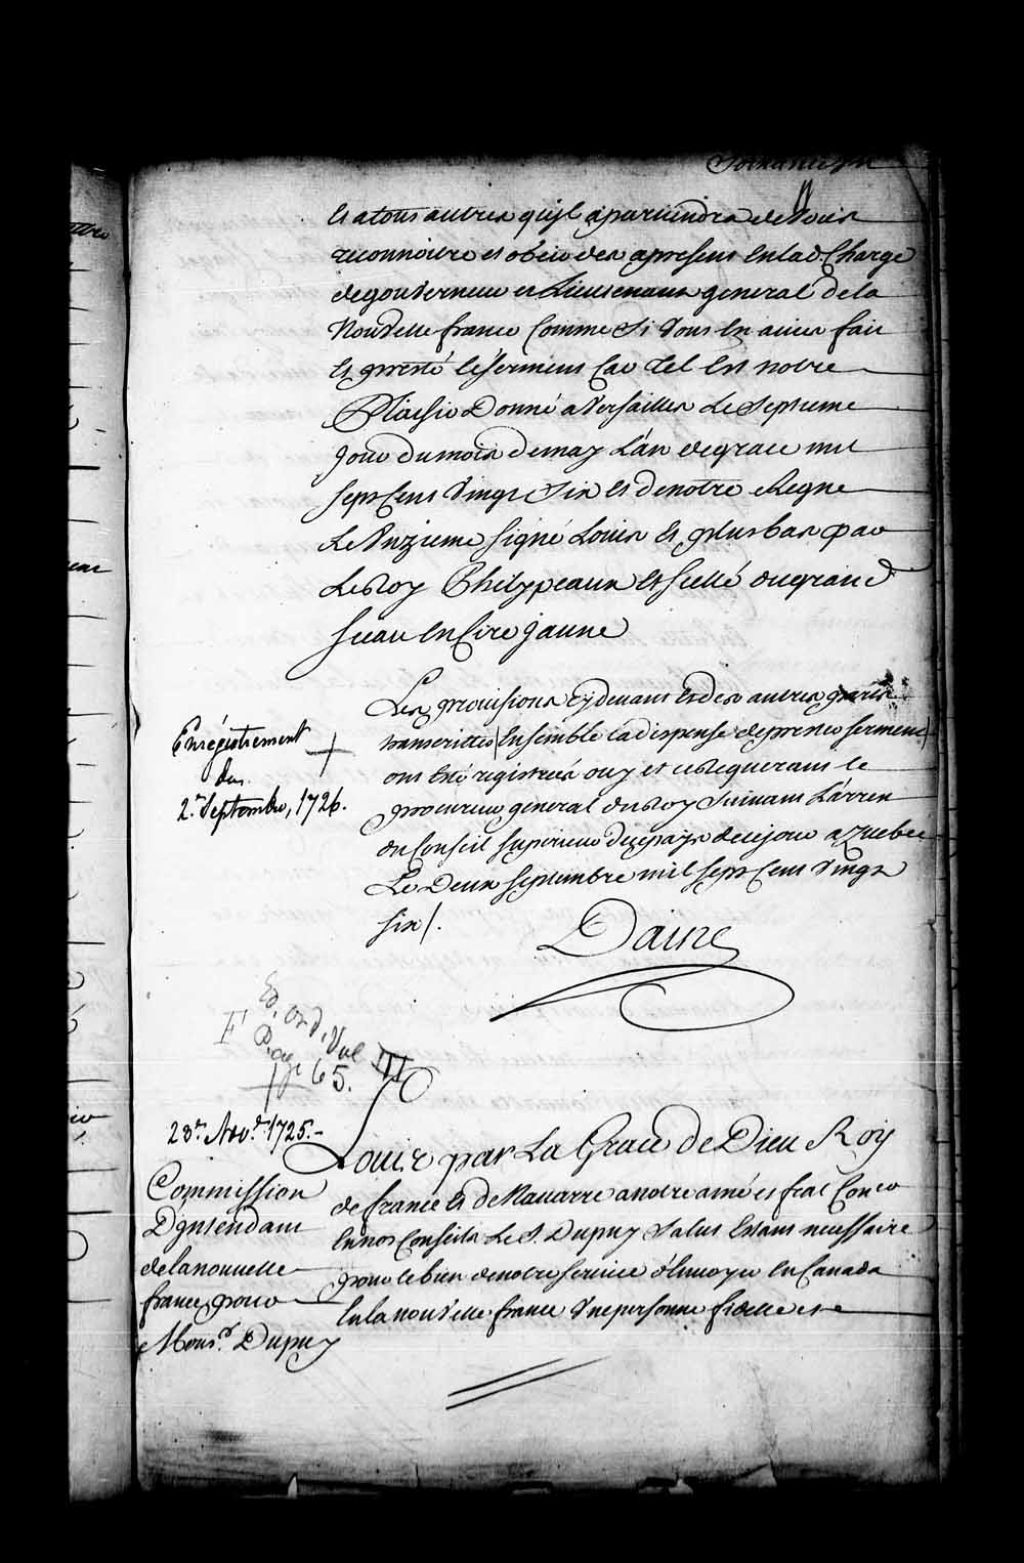 Soixante Sept
Et a tous autres quyl apartiendra de Vous
reconnoitre et obeir des apresent En lad. Charge
de gouverneur et Lieutenant general de la
Nouvelle france Comme Si Vous En aviez fait
Et presté le serment Car Tel Est notre
Plaisir Donné a Versailles Le Septieme
Jour du mois de may L'an de grace mil
Sept Cent Vingt Six Et de notre Regne
Le Unzieme Signé Louis Et plus bas par
Le Roy Phelypeaux Et Scellé du grand
Sceau En Cire jaune
Les provisions Cy devant Et des autres parts
transcrittes Ensemble la dispense de prester serment
ont Eté registrées ouy et ce Requerant le
procureur general du Roy Suivant L'arrest
du Conseil Superieur de ce pays de ce jour a Quebec
Le Deux Septembre mil Sept Cent Vingt
Six /.
Daine
Enrégistrement
du
2.e Septembre, 1726.
Ed. ord. Vol III
F Page 65.
28e Nov.e 1725.-
Commission
D'yntendant
de la nouvelle
france, pour
Mons.r Dupuy
Louis par La Grace de Dieu Roy
de france Et de Navarre a notre amé et feal Con.er
En nos Conseils Le S. Dupuy Salut Estant necessaire
pour le bien de notre Service d'Envoyer En Canada
En la nouvelle france Une personne fidelle et